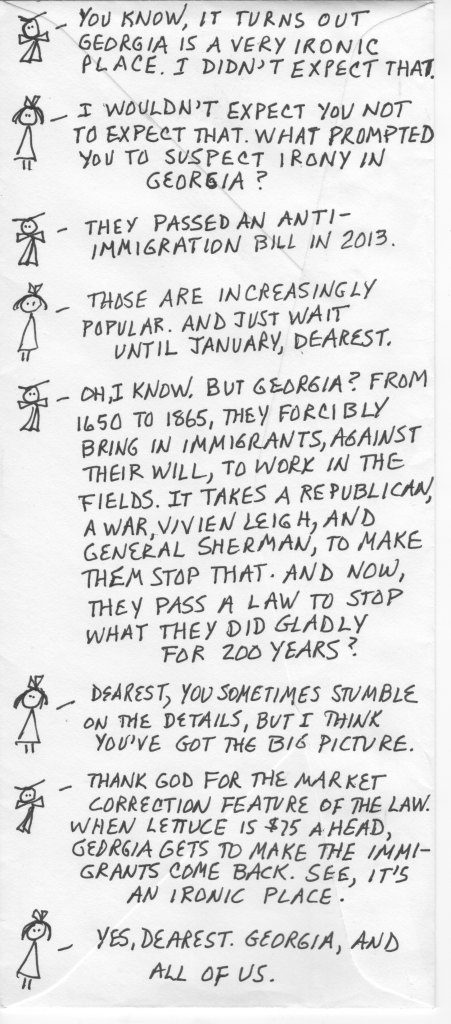 YOU KNOW, IT TURNS OUT
GEORGIA IS A VERY IRONIC
PLACE. I DIDN'T EXPECT THAT.
I WOULDN'T EXPECT YOU NOT
TO EXPECT THAT. WHAT PROMPTED
YOU TO SUSPECT IRONY IN
GEORGIA?
THEY PASSED AN ANTI-
IMMIGRATION BILL IN 2013.
THOSE ARE INCREASINGLY
POPULAR. AND JUST WAIT
UNTIL JANUARY, DEAREST.
OH, I KNOW. BUT GEORGIA? FROM
1650 TO 1865, THEY FORCIBLY
BRING IN IMMIGRANTS, AGAINST
THEIR WILL, TO WORK IN THE
FIELDS. IT TAKES A REPUBLICAN,
A WAR, VIVIEN LEIGH, AND
GENERAL SHERMAN, TO MAKE
THEM STOP THAT. AND NOW,
THEY PASS A LAW TO STOP
WHAT THEY DID GLADLY
FOR 200 YEARS?
DEAREST, YOU SOMETIMES STUMBLE
ON THE DETAILS, BUT I THINK
YOU'VE GOT THE BIG PICTURE.
THANK GOD FOR THE MARKET
CORRECTION FEATURE OF THE LAW.
WHEN LETTUCE IS $75 A HEAD,
GEORGIA GETS TO MAKE THE IMMI-
GRANTS COME BACK. SEE, IT'S
AN IRONIC PLACE.
YES, DEAREST. GEORGIA, AND
ALL OF US.